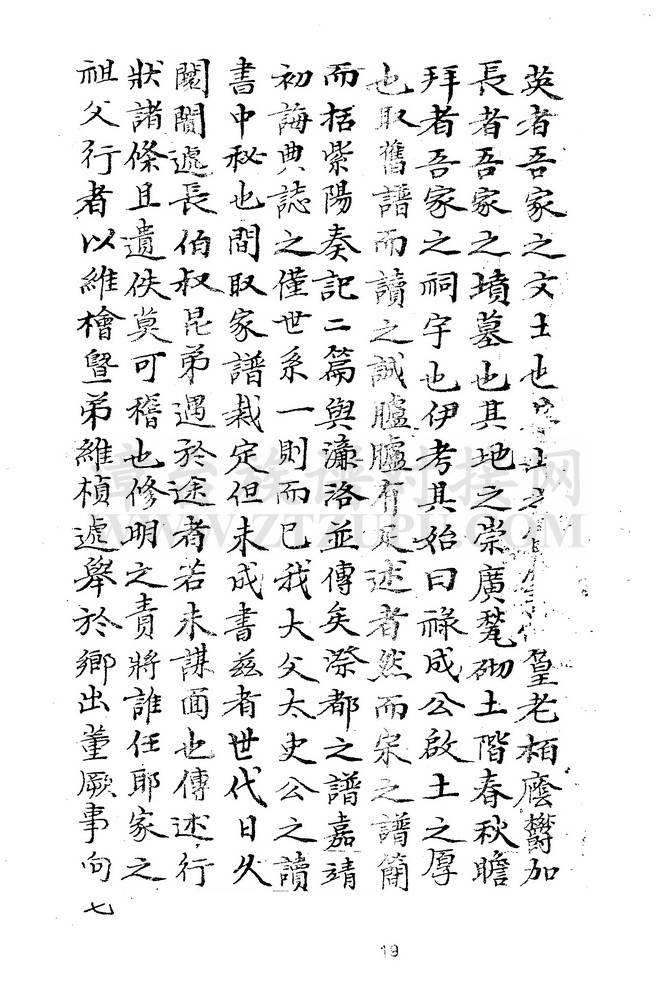 英者吾家之文士也山之篁老栢蔭欝加
長者吾家之墳墓也其地之崇廣甃砌土階春秋瞻
拜者吾家之祠宇也伊考其始曰祿成公啟土之厚
也取舊譜而讀之誠臚臚有足述者然而宋之譜簡
而括紫陽奏記二篇與濂洛並傳矣漈都之譜嘉靖
初誨典誌之僅世系一則而已我大父太史公之讀
書中秘也間取家譜裁定但未成書茲者世代日久
闊閽遞長伯叔昆弟遇於途者若未謀面也傳述行
狀諸條且遺佚莫可稽也修明之責將誰任耶家之
祖父行者以維檜曁弟維楨遞舉於鄉出董厥事向
七
19
章台族谱对接网
WWW.ZTZUPU.COM